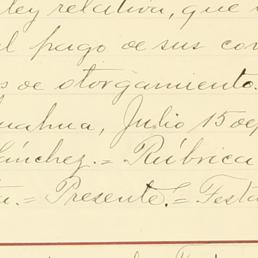 ley relativa, que
el pago de sus con
s de otorgamiento.
uahua, Julio 15 de
Sánchez.= Rúbrica
ta.= Presente.= Testa